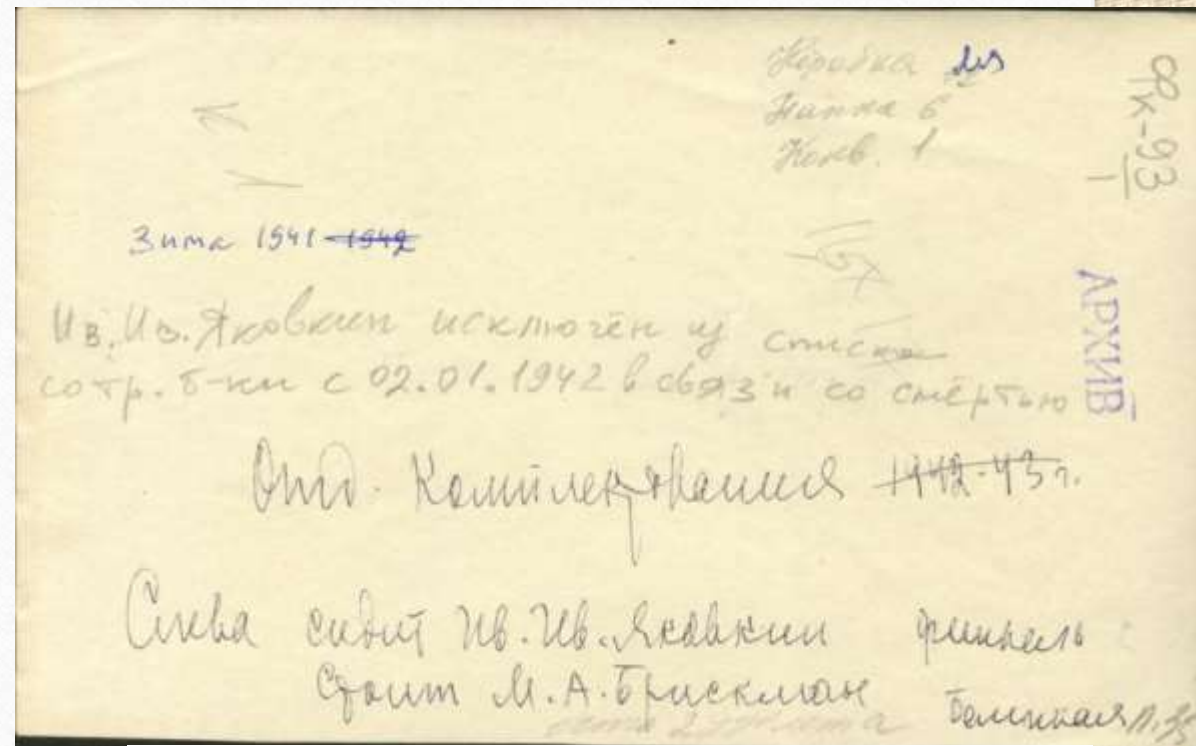 Коробка
Папка 6
Конв. 1
Фк-93
1
АРХИВ
Зима 1941-1942
Ив. Ив. Яковкин исключён из списка
сотр. б-ки с 02.01.1942 в связи со смертью
Отд. Комплектования 1942-43 г.
Слева сидит Ив. Ив. Яковкин
Стоит М. А. Брискман